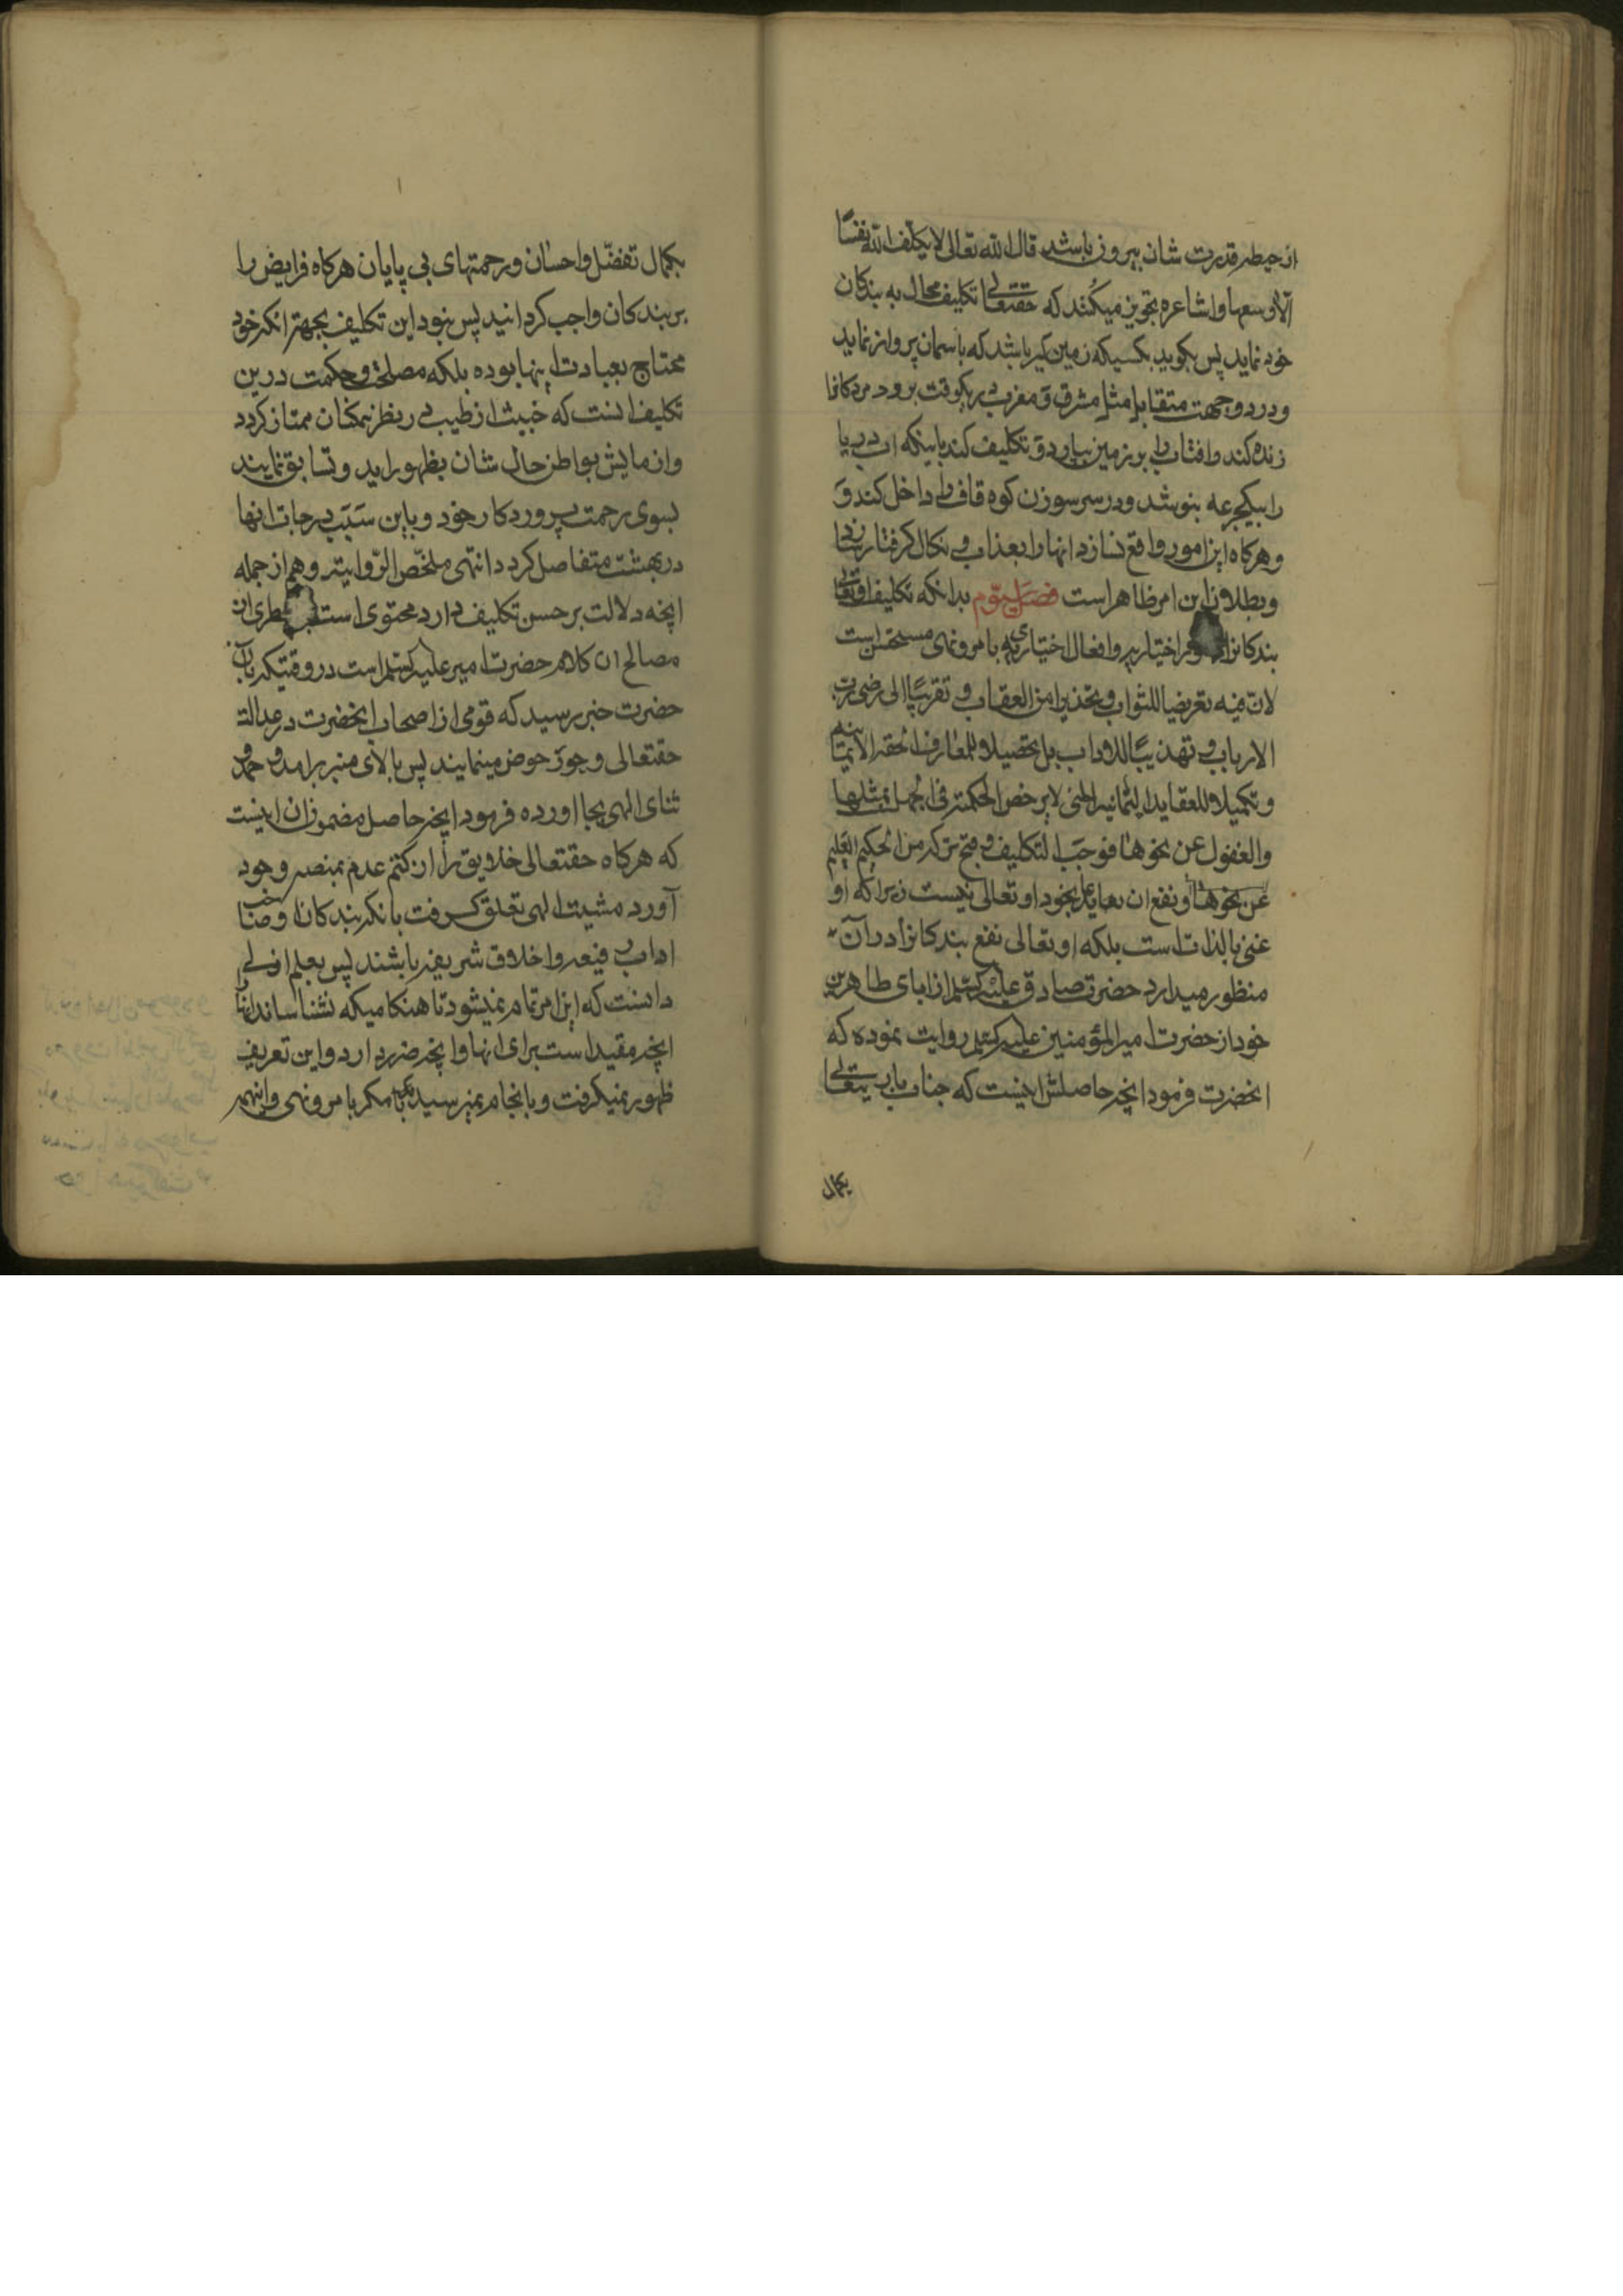 از حیطهٔ قدرت شان بیرون باشد قال الله تعالی لا یکلف الله نفسًا
الّا وسعها واشاعره تجویز میکُنند که حقتعالی تکلیف محال به بندکان
خود نماید پس بکوید بکسیکه زمین کیر باشد که باسمان پرواز نماید
ودر دو جهت متقابل مثل مشرق و مغرب در یکوقت برود مردکانرا
زنده کند وافتاب را بر زمین بیاورد و تکلیف کند باینکه اب دریا
را بیکجرعه بنوشد ودر سر سوزن کوه قاف را داخل کند و
وهرکاه این امور واقع نسازد انها را بعذاب و نکال کرفتار
وبطلان این امر ظاهر است فصل سیّوم بدانکه تکلیف اوتعالی
بندکانرا اختیاریه وافعال اختیاریه بامر ونهی مستحسن است
لان فیه تعریضا للثواب و تحذیرا من العقاب و تقریبًا الی مرضی رب
الارباب و تهذیبًا للاداب بل تحصیلا للمعارف الحقه الایمانیه
و تکمیلا للعقاید التی لا یرخص الحکمة فی الجهل بمثلها
والغفول عن نحوها فوجب التکلیف و قبح ترکه من الحکیم العلیم
عن نحوها و نفع ان بخود او تعالی نیست زیرا که او
غنی بالذات است بلکه او تعالی نفع بندکانرا در آن
منظور میدارد حضرت صادق علیه السلم از ابای طاهرین
خود از حضرت امیر المؤمنین علیه السلم روایت نموده که
انحضرت فرمود انچه حاصلش اینست که جناب باریتعالی
بکمال
بکمال تفضّل واحسان ورحمتهای بی پایان هرکاه فرایض را
بر بندکان واجب کردانید پس نبود این تکلیف بجهة انکه خود
محتاج بعبادت اینها بوده بلکه مصلحت و حکمت درین
تکلیف انست که خبیث از طیب در نظر همکنان ممتاز کردد
وازمایش بواطن حال شان بظهور اید وتسابق نمایند
بسوی رحمت پروردکار خود وباین سَبَب درجات انها
در بهشت متفاصل کردد انتهی ملخّص الرّوایة وهم از جمله
انچه دلالت بر حسن تکلیف دارد محتوی است
مصالح ان کلام حضرت امیر علیه السلم است در وقتیکه بان
حضرت خبر رسید که قومی از اصحاب انحضرت در عدالة
حقتعالی وجور خوض مینمایند پس بالای منبر برامد و حمد و
ثنای الهی بجا اورده فرمود انچه حاصل مضمون ان اینست
که هرکاه حقتعالی خلایق را از کتم عدم بمنصه وجود
آورد مشیت الهی تعلق کرفت بانکه بندکان او صاحب
اداب رفیعه واخلاق شریفه باشند پس بعلم ازلی
دانست که این امر تمام نمیشود تا هنکامیکه نشناساند انها را
انچه مفید است برای انها وانچه ضرر دارد واین تعریف
ظهور نمیکرفت وبانجام نمیرسید مکر بامر ونهی و